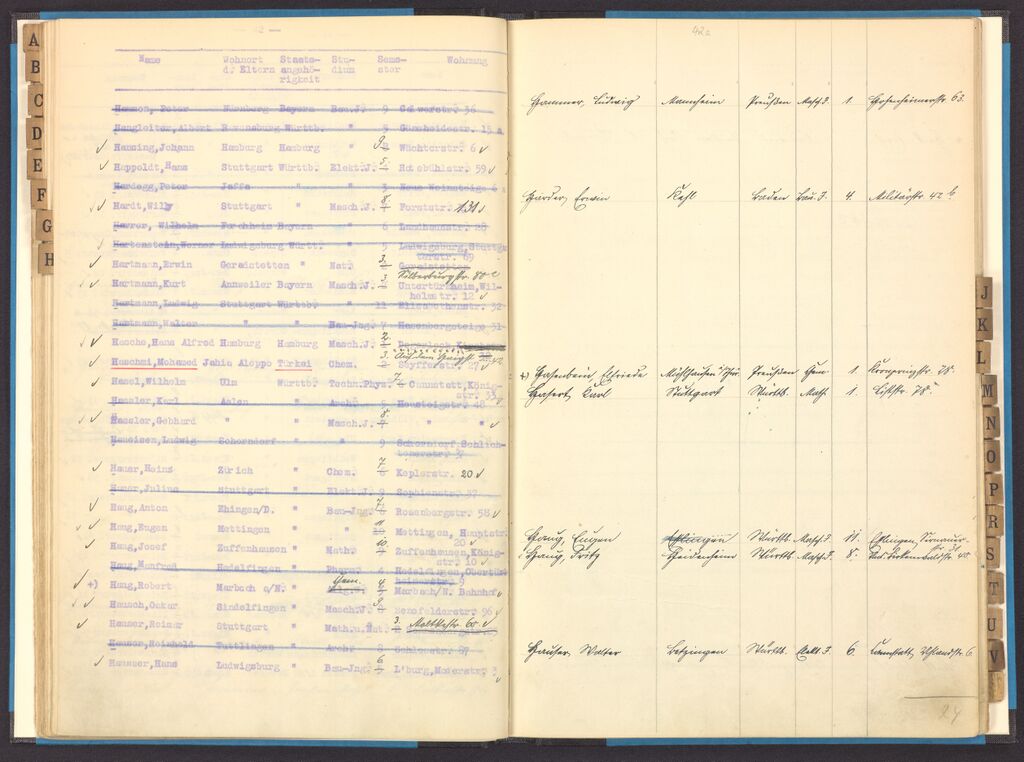 A
B
C
D
E
F
G
H
Name Wohnort d. Eltern Staatsangehörigkeit Studium Semester Wohnung
Hemson, Peter Nürnberg Bayern Bau.J. 9 36
Hengleiter, Albert Ravensburg Württb. " 5 Gänsheidestr. 15 a
Hansing, Johann Hamburg Hamburg " 9. Wächterstr. 6
Happoldt, Hans Stuttgart Württb. Elekt.J. 5. Rotebühlstr. 59
Hardegg, Peter Jaffa " " 3 Neue Weinsteige 6
Hardt, Willy Stuttgart " Masch.J. 8. Forststr. 131
Wilhelm Forchheim Bayern " 6 Landhausstr. 28
Hartenstein, Werner Ludwigsburg Württ. " 5 Ludwigsburg, Stuttgarterstr. 69
Hartmann, Erwin Geradstetten " Nat. 3. Geradstetten Silberburgstr. 80
Hartmann, Kurt Annweiler Bayern Masch.J. 3 Untertürkheim, Wilhelmstr. 12
Hartmann, Ludwig Stuttgart Württb. " 11 Elisabethenstr. 32
Hartmann, Walter " " Bau-Jng. 7 Hasenbergsteige 31
Hasche, Hans Alfred Hamburg Hamburg Masch.J. 2. Degerloch
Haschmi, Mohamed Jahia Aleppo Türkei Chem. 3. Seyfferstr. 27
Hasel, Wilhelm Ulm Württb. Techn.Phys. 7 Cannstatt, Königstr. 33
Hassler, Karl Aalen " Arch. 5 Heusteigstr. 48
Hassler, Gebhard " " Masch.J. 8. " "
Haueisen, Ludwig Schorndorf " " 9 Schorndorf, Schlichtenerstr. 37
Hauer, Heinz Zürich " Chem. 7 Keplerstr. 20
Hauer, Julius Stuttgart " Elekt.J. 9 Sophienstr. 37
Haug, Anton Ehingen/D. " Bau-Jng. 7. Rosenbergstr. 58
Haug, Eugen Mettingen " " 11 Mettingen, Hauptstr. 20
Haug, Josef Zuffenhausen " Math. 10. Zuffenhausen, Königstr. 10
Haug, Manfred Hedelfingen " Pharm. 4 Hedelfingen, 9
+) Haug, Robert Marbach a/N. " Chem. 4 Marbach/N. Bahnhof
Hausch, Oskar Sindelfingen " Masch.J. 9. Senefelderstr. 96
Hauser, Reiner Stuttgart " Math.u.Nat. 3. Moltkestr. 60
Hauser, Reinhold Tuttlingen " Arch. 8 Schlosstr. 87
Hausser, Hans Ludwigsburg " Bau-Jng. 6 L'burg, Moserstr. 3
42a
Hammer, Ludwig Mannheim Preußen Masch.J. 1. Hohenheimerstr. 63.
Harder, Erwin Kehl Baden Bau.J. 4. Militärstr. 42 b
+) Hasenbein, Elfriede Mühlhausen Thür. Preußen Chem. 1. Kronprinzstr. 28.
Hasert, Karl Stuttgart Württb. Math. 1. Liststr. 78.
Haug, Eugen Württb. Masch.J. 11. Eßlingen,
Haug, Fritz Heidenheim Württb. Masch.J. 8.
Hauser, Walter Betzingen Württb. J. 6 Cannstatt, Uhlandstr. 6.
24
J
K
L
M
N
O
P
R
S
T
U
V